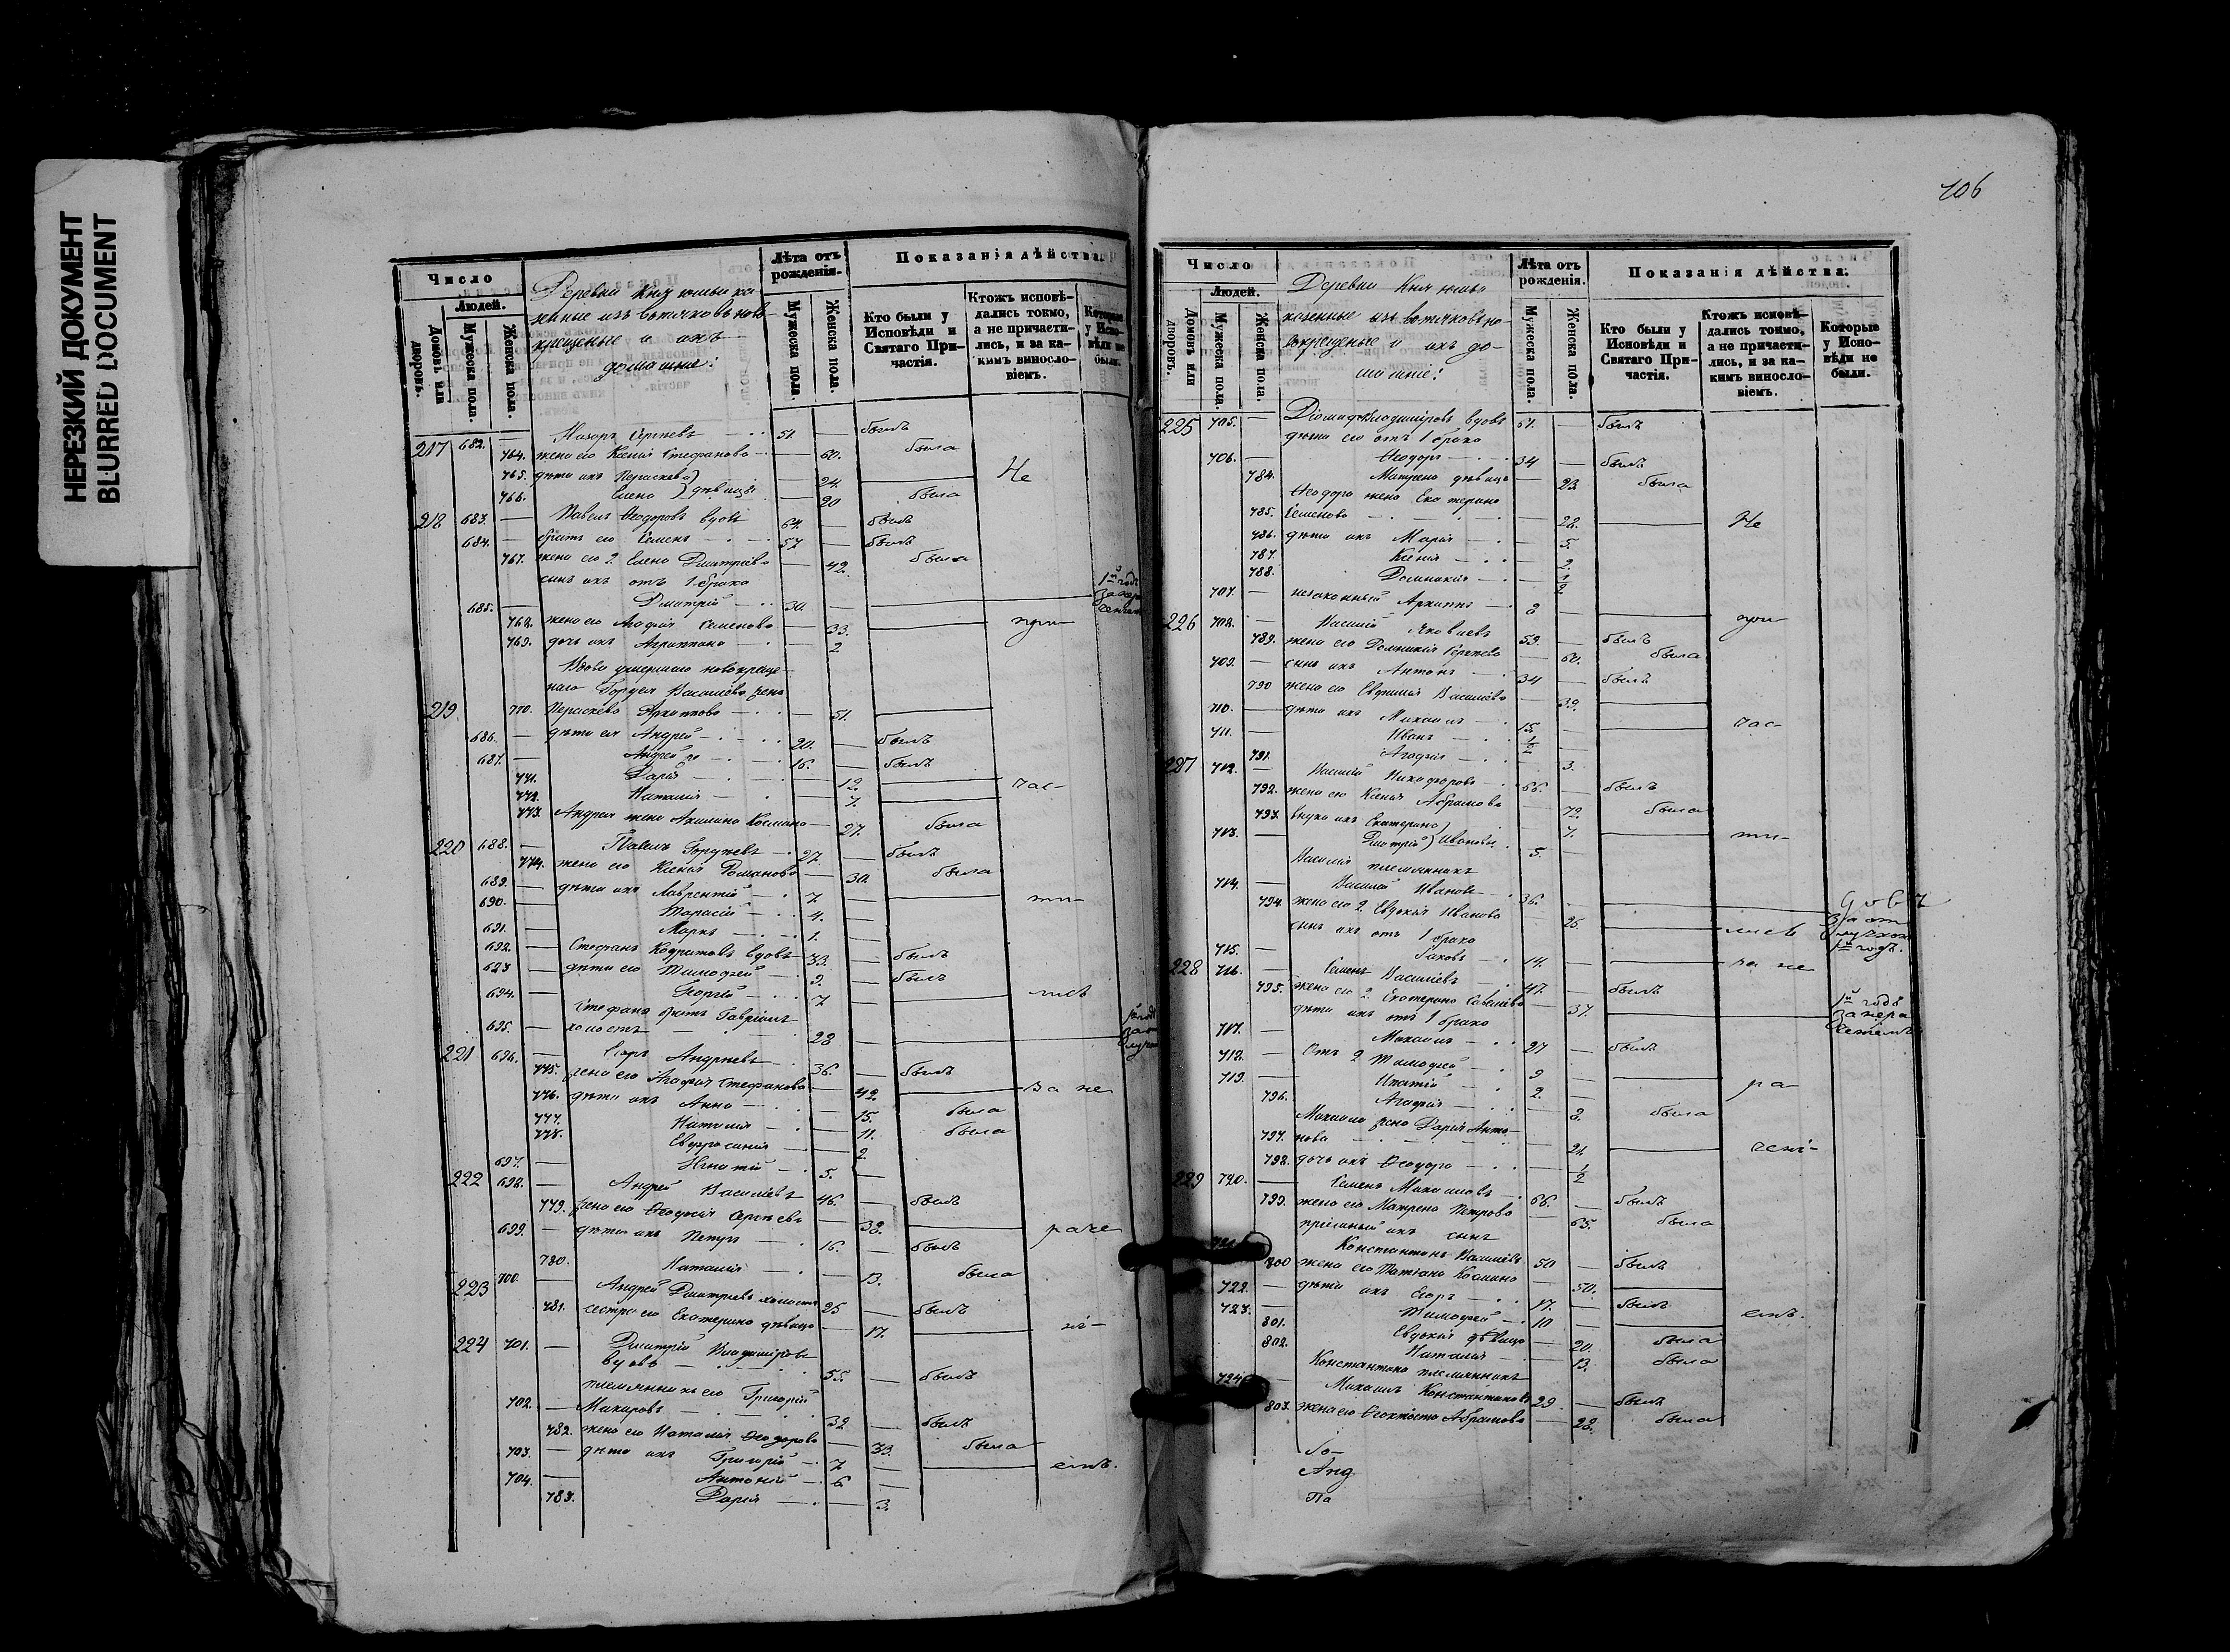 НЕРЕЗКИЙ ДОКУМЕНТ
BLURRED DOCUMENT
Число
Людей.
Домовъ или дворовъ.
Мужеска пола.
Женска пола.
Деревни
новокрещеные и ихъ
домашніе:
Лѣта отъ рожденія.
Мужеска пола.
Женска пола.
Показанія дѣйства.
Кто были у Исповѣди и Святаго Причастія.
Ктожъ исповѣдались токмо, а не причастились, и за какимъ винословіемъ.
Которые у Исповѣди не были.
217 682. — Назаръ Сергѣевъ 51. — былъ
764. жена его Ксенія Стефанова — 60. была
765. дѣти ихъ Параскева — 24. Не
766. Елена дѣвицы — 20 была
218 683. — Павелъ Ѳеодоровъ вдовъ 64. — былъ
684. — братъ его Семенъ 57 — былъ
767. жена его 2 Елена Дмитріева — 42. была
сынъ ихъ отъ 1 брака
685. — Дмитрій 30. —
768. жена его Агафія Семенова — 33. при-
769. дочь ихъ Агриппина — 2
Вдова умершаго новокреще-
наго Василіева жена
219 770. Параскева Архиппова — 51.
686. — дѣти ея Андрей 20. — былъ
687. — Андрей же 16. — былъ
771. Дарія — 12. час-
772. Наталія — 7.
773. Андрея жена Акилина Космина — 27. была
220 688. — Павелъ 27. — былъ
774. жена его Ксенія Романова — 30. была
689. — дѣти ихъ Лаврентій 7 — ти-
690. — Тарасій 4. —
691. — Маркъ 1. —
692. — Стефанъ Кодратовъ вдовъ 33. — былъ
693 — дѣти его Тимофей 9. — былъ
694. — Георгій 7 — лись
Стефана братъ Гавріилъ
695. — холостъ 28 —
221 696. — Егоръ Андреевъ 36. — былъ
775. жена его Агафія Стефанова — 42. за не
776. дѣти ихъ Анна — 15. была
777. Наталія — 11. была
778. Евфросинія — 2.
697. — Игнатій 5. —
222 698. — Андрей Василіевъ 46. — былъ
779. жена его Ѳеодосія Сергѣева — 38. раче
699. — дѣти ихъ Петръ 16. — былъ
780. Наталія — 13. была
223 700. — Андрей Дмитріевъ холостъ 25 — былъ
781. сестра его Екатерина дѣвица — 17. ні-
224 701. — Дмитрій Владиміровъ
вдовъ 55. — былъ
племянникъ его Григорій
702. — Макаровъ 32 — былъ
782. жена его Наталія Ѳеодорова — 33. была
703. — дѣти ихъ Григорій 7 — емъ.
704. — Антоній 6 —
783. Дарія — 3.
106
Число
Людей.
Домовъ или дворовъ.
Мужеска пола.
Женска пола.
Деревни
казенные изъ вотяковъ но-
вокрещеные и ихъ до-
машніе:
Лѣта отъ рожденія.
Мужеска пола.
Женска пола.
Показанія дѣйства.
Кто были у Исповѣди и Святаго Причастія.
Ктожъ исповѣдались токмо, а не причастились, и за какимъ винословіемъ.
Которые у Исповѣди не были.
225 705. — Діомидъ Владиміровъ вдовъ 61. — былъ
дѣти его отъ 1 брака
706. — Ѳеодоръ 34 — былъ
784. Матрена дѣвица — 23 была
Ѳеодора жена Екатерина
785. Семенова — 28. Не
786. дѣти ихъ Марія — 5.
787. Ксенія — 2.
788. Домникія — 1/2
707. — незаконный Архиппъ 8 — при-
226 708. — Василій Яковлевъ 59. — былъ
789. жена его Домникія Сергѣева — 60. была
709. — сынъ ихъ Антонъ 34 — былъ
790 жена его Евфимія Василіева — 39.
710. — дѣти ихъ Михаилъ 15. — час-
711. — Иванъ 1/2 —
791. Агафія — 3.
227 712. — Василій Никифоровъ 66. — былъ
792. жена его Ксенія Абрамова — 72. была
793. внуки ихъ Екатерина — 7. ти-
713. — Дмитрій Ивановы 5.
Василія племянникъ
714. — Василій Ивановъ 36. —
794. жена его 2 Евдокія Иванова — 25. лись
сынъ ихъ отъ 1 брака
715. — Яковъ 14. — за не
228 716. — Семенъ Василіевъ 47. — былъ
795. жена его 2 Екатерина Савеліева — 37.
дѣти ихъ отъ 1 брака
717. — Михаилъ 27 — былъ
718. — Отъ 2 Тимофей 9 — ра-
719. — Ипатій 2. —
796. Агафія — 8. была
Михаила жена Дарія Анто-
797. нова — 21. чені-
798. дочь ихъ Ѳеодора — 1/2
229 720. — Семенъ Михаиловъ 66. — былъ
799. жена его Матрена Петрова — 65. была
пріемный ихъ сынъ
721. Константинъ Василіевъ 50 — былъ
800 жена его Татіана Космина — 50.
722. — дѣти ихъ Егоръ 17. — былъ
723. — Тимофей 10 — емъ.
801. Евдокія дѣвица — 20. была
802. Наталія — 13. была
Константина племянникъ
724 — Михаилъ Константиновъ 29 — былъ
803. жена его Ѳеоктиста Абрамова — 28. была